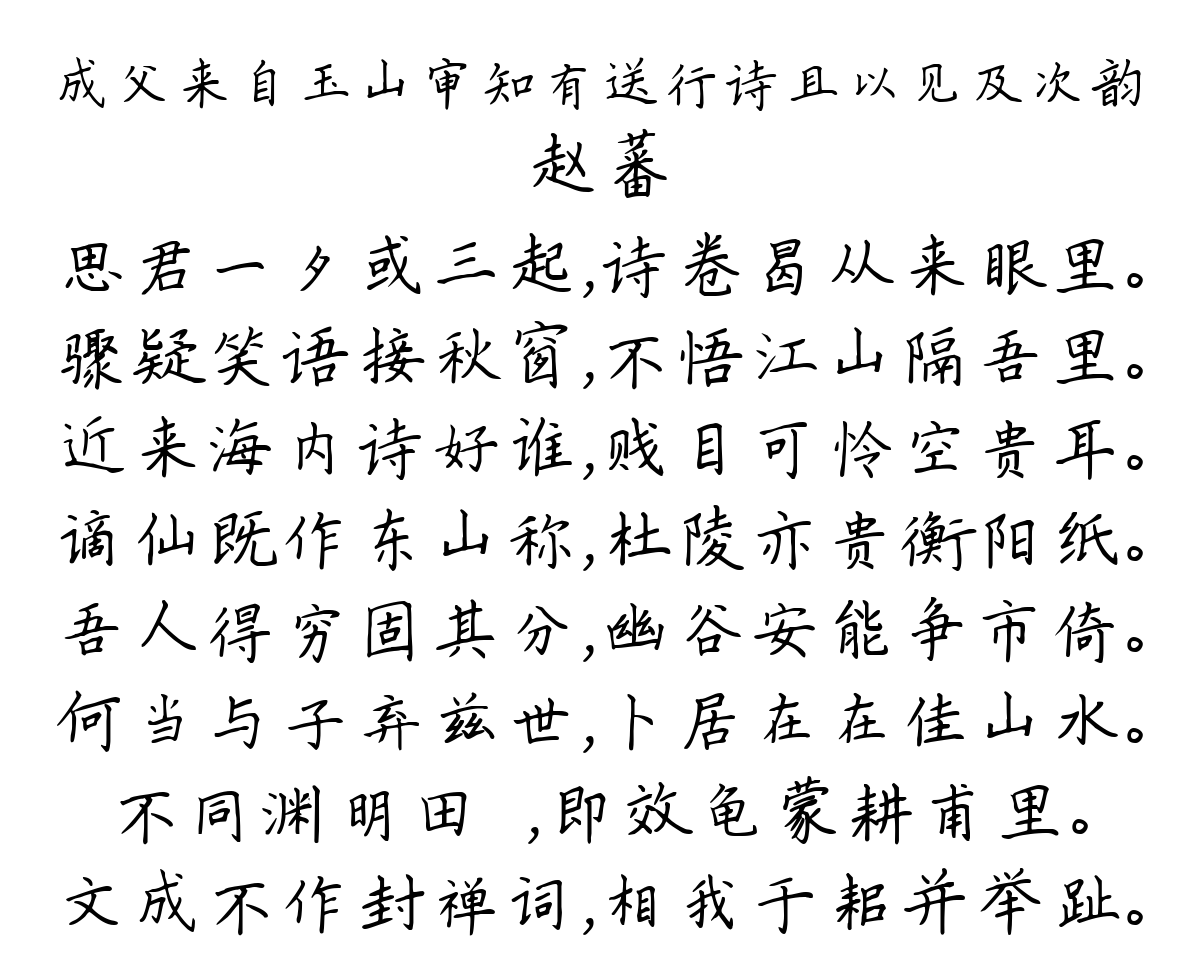 成父来自玉山审知有送行诗且以见及次韵
赵蕃
思君一夕或三起,诗卷曷从来眼里。
骤疑笑语接秋窗,不悟江山隔吾里。
近来海内诗好谁,贱目可怜空贵耳。
谪仙既作东山称,杜陵亦贵衡阳纸。
吾人得穷固其分,幽谷安能争市倚。
何当与子弃兹世,卜居在在佳山水。
不同渊明田 ,即效龟蒙耕甫里。
文成不作封禅词,相我于耜并举趾。